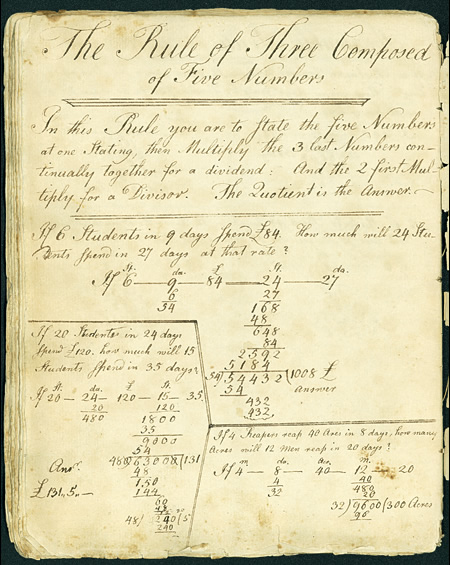 The Rule of Three Composed
of Five Numbers
In this Rule you are to State the five Numbers
at one Stating, then Multiply the 3 last Numbers con-
tinually together for a dividend: And the 2 first Mul-
tiply for a Divisor. The Quotient is the Answer.
If 6 Students in 9 days Spend £84. How much will 24 Stu-
dents Spend in 27 days at that rate?
St. da. £ St. da.
If 6 — 9 — 84 — 24 — 27
6 27
54 168
48
648
84
2592
5184
54) 54432 (1008 £
54 Answer
432
432
If 20 Students in 24 days
Spend £120. how much will 15
Students Spend in 35 days?
St. da. £ St.
If 20 — 24 — 120 — 15 — 35
20 120
480 1800
35
9000
54
480) 63000 (131
Ans. 48
150
£131,,5,,— 144
60
20
48) 240 (5
240
If 4 Reapers reap 40 Acres in 8 days, how many
Acres will 12 Men reap in 20 days?
m da. Acr. m.
If 4 — 8 — 40 — 12 — 20
4 40
32 480
20
32) 9600 (300 Acres
96